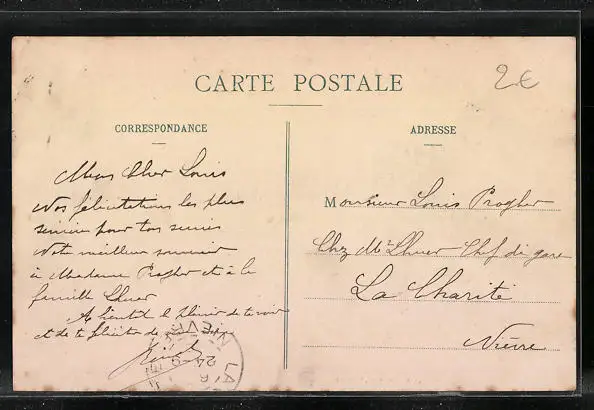 CARTE POSTALE
2€
CORRESPONDANCE
ADRESSE
Mon Cher Louis
Nos félicitations les plus
sincères pour ton succès
Notre meilleur souvenir
à Madame Progher et à la
famille Lhuer
A bientôt le plaisir de te voir
et de te féliciter de
Monsieur Louis Progher
Chez Mr Lhuer Chef de gare
La Charité
Nièvre
NIEVRE
LA
24